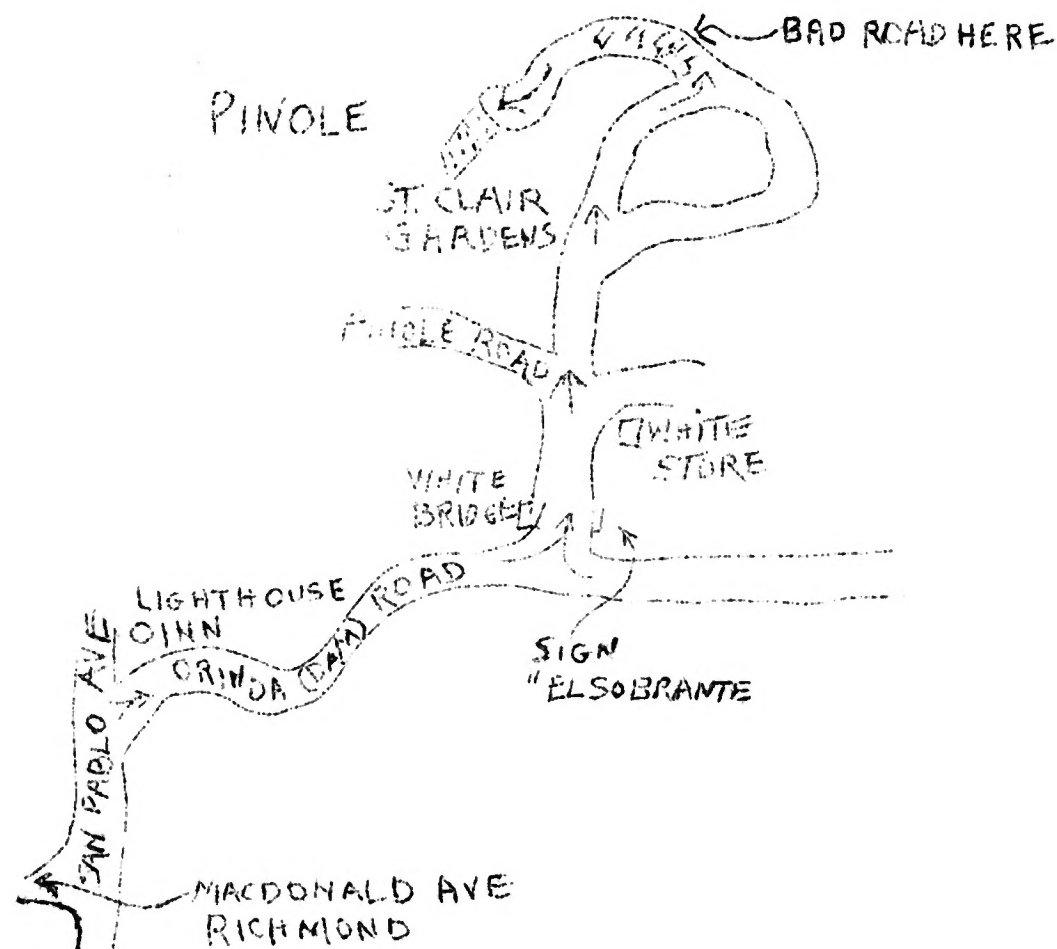 BAD ROAD HERE
PINOLE
ST. CLAIR
GARDENS
PINOLE ROAD
WHITE
STORE
WHITE
BRIDGE
LIGHTHOUSE
INN
ORINDA (DAM) ROAD
SIGN
"ELSOBRANTE
SAN PABLO AVE
MACDONALD AVE
RICHMOND